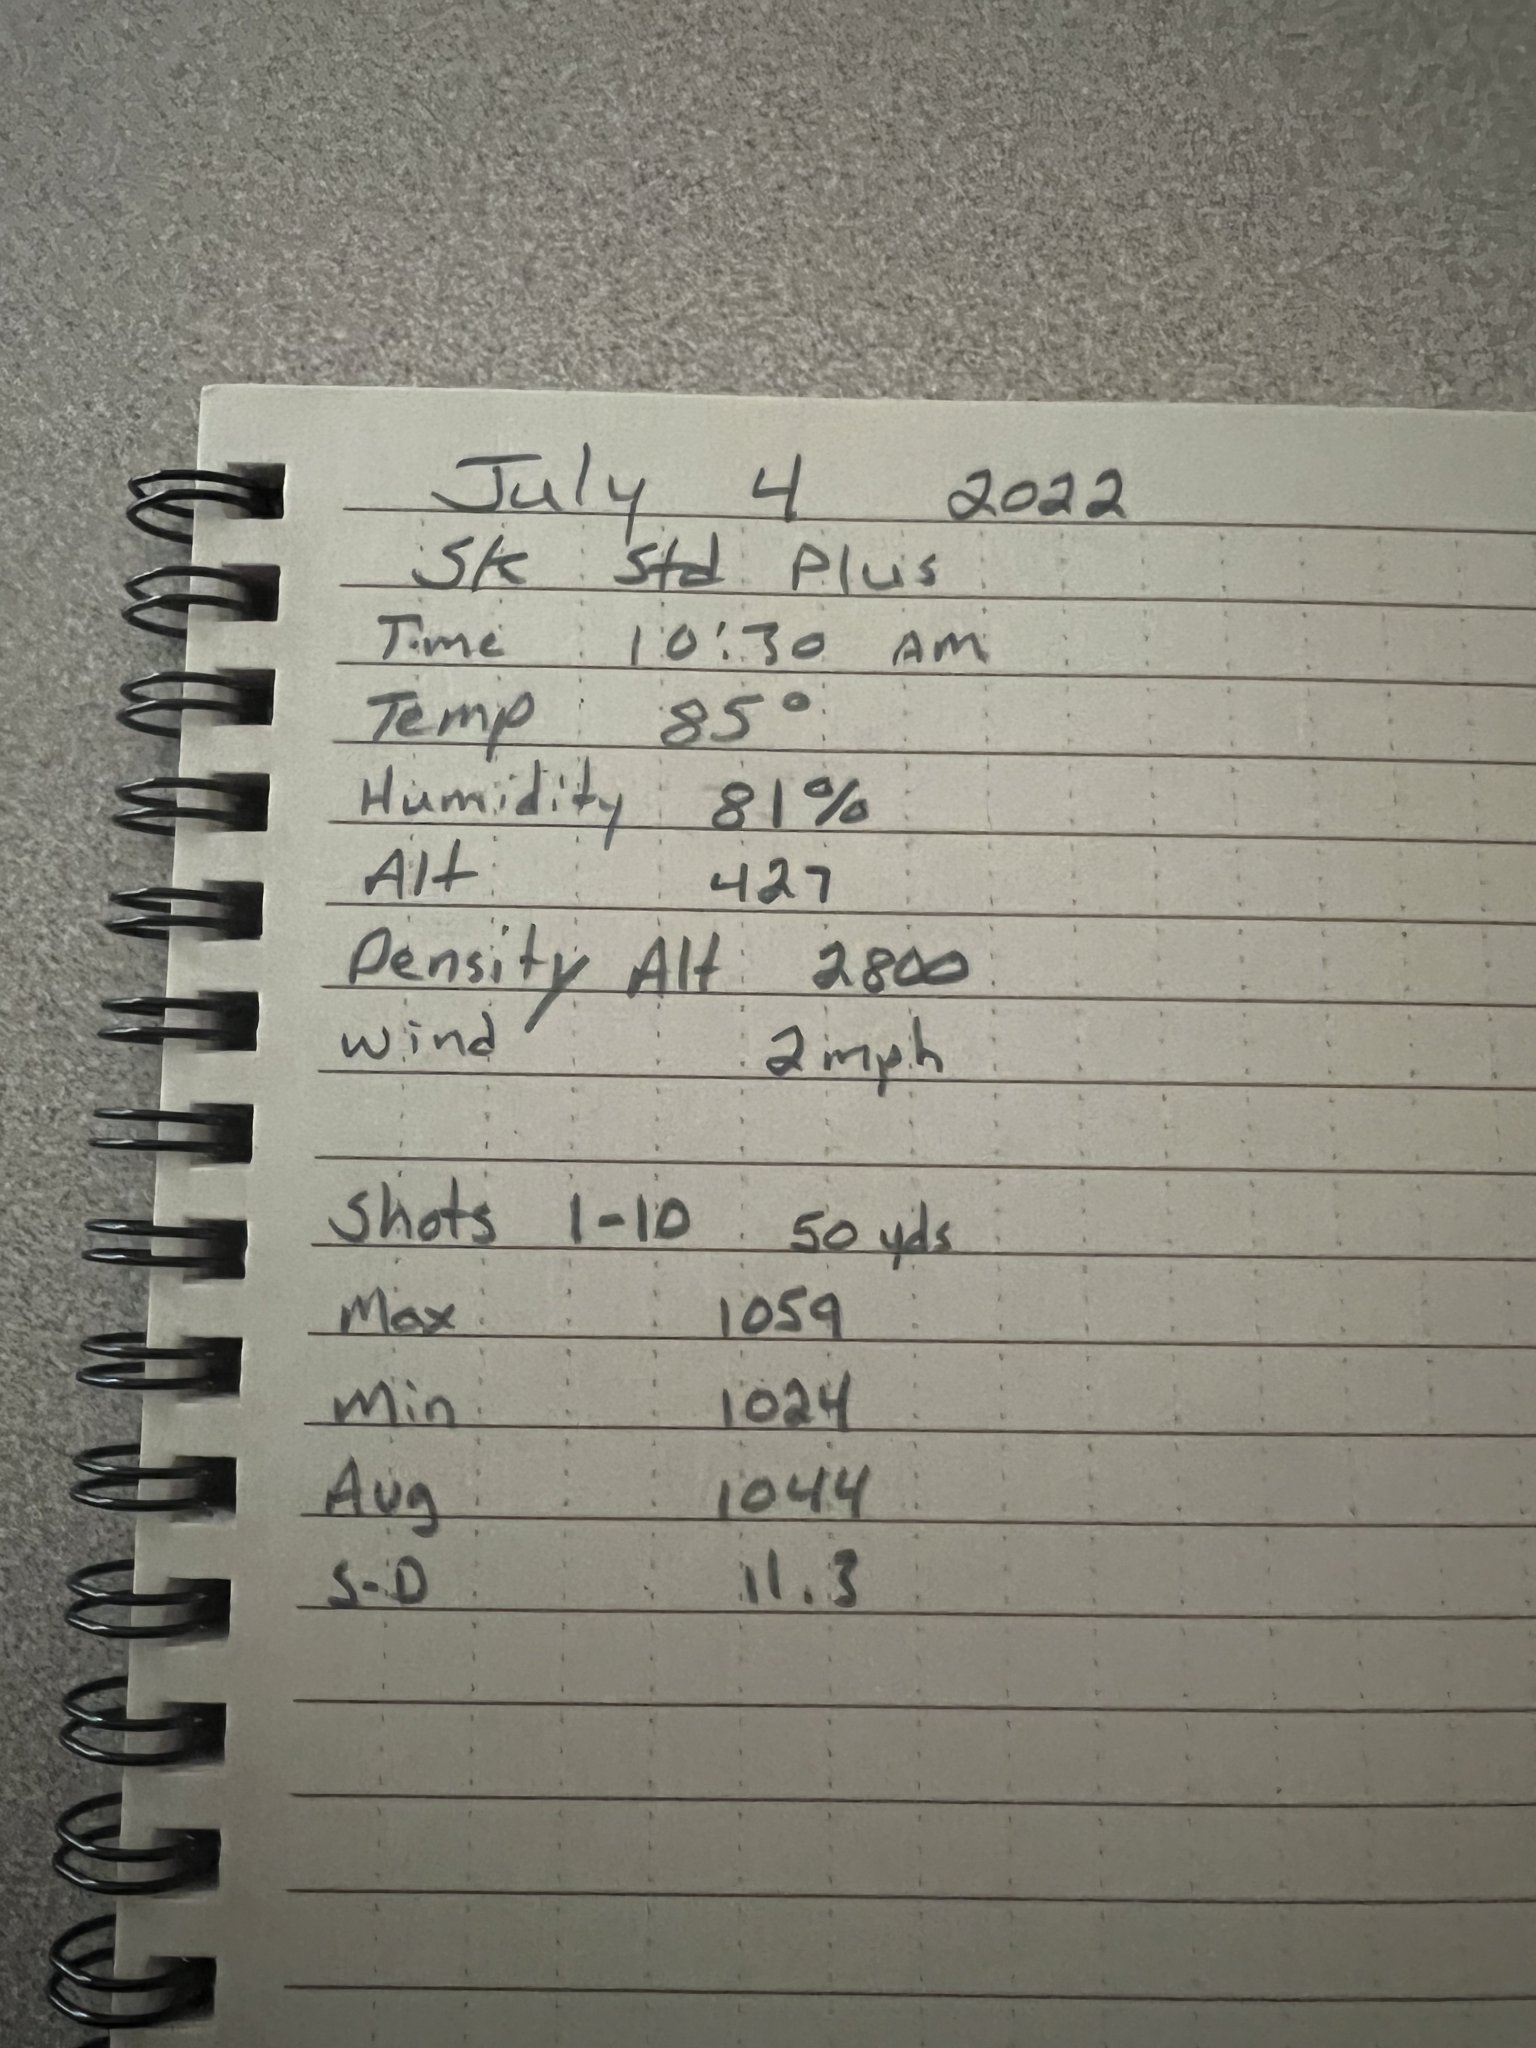 July 4 2022
SK Std Plus
Time 10:30 AM
Temp 85°
Humidity 81%
Alt 427
Density Alt 2800
Wind 2mph
Shots 1-10 50 yds
Max 1059
Min 1024
Avg 1044
S-D 11.3